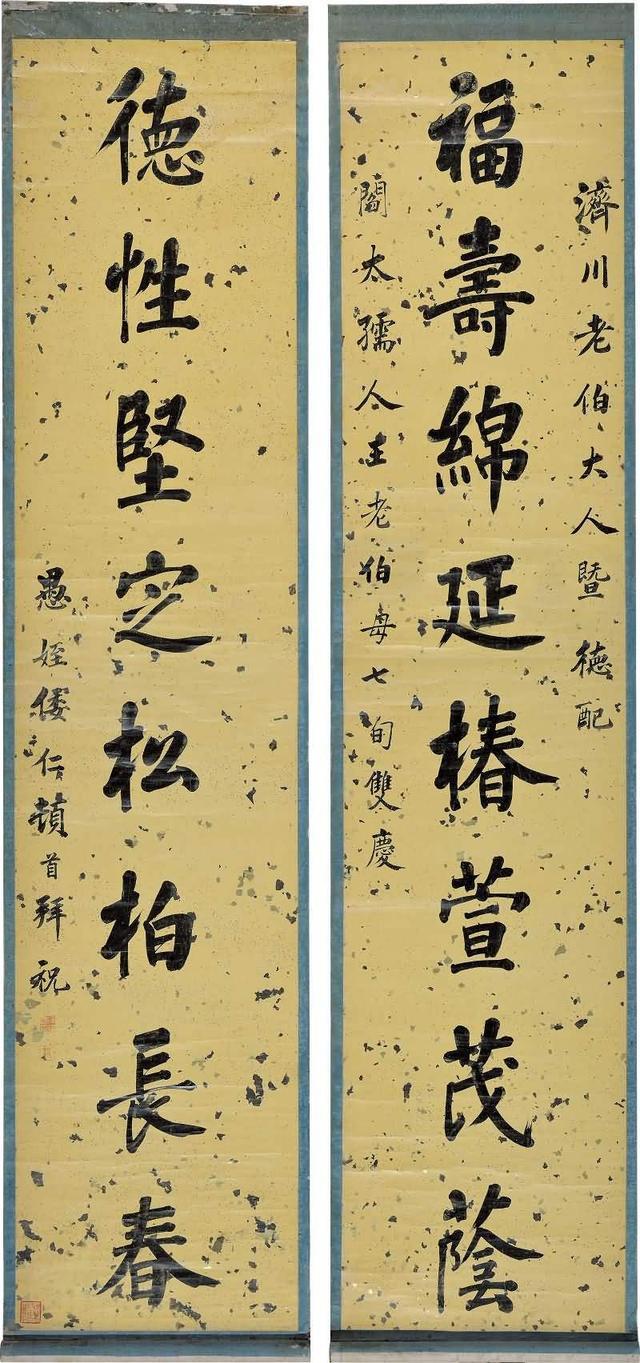 濟川老伯大人暨 德配
福壽綿延椿萱茂蔭
閻太孺人王老伯母七旬雙慶
德性堅定松柏長春
愚姪倭仁頓首拜祝